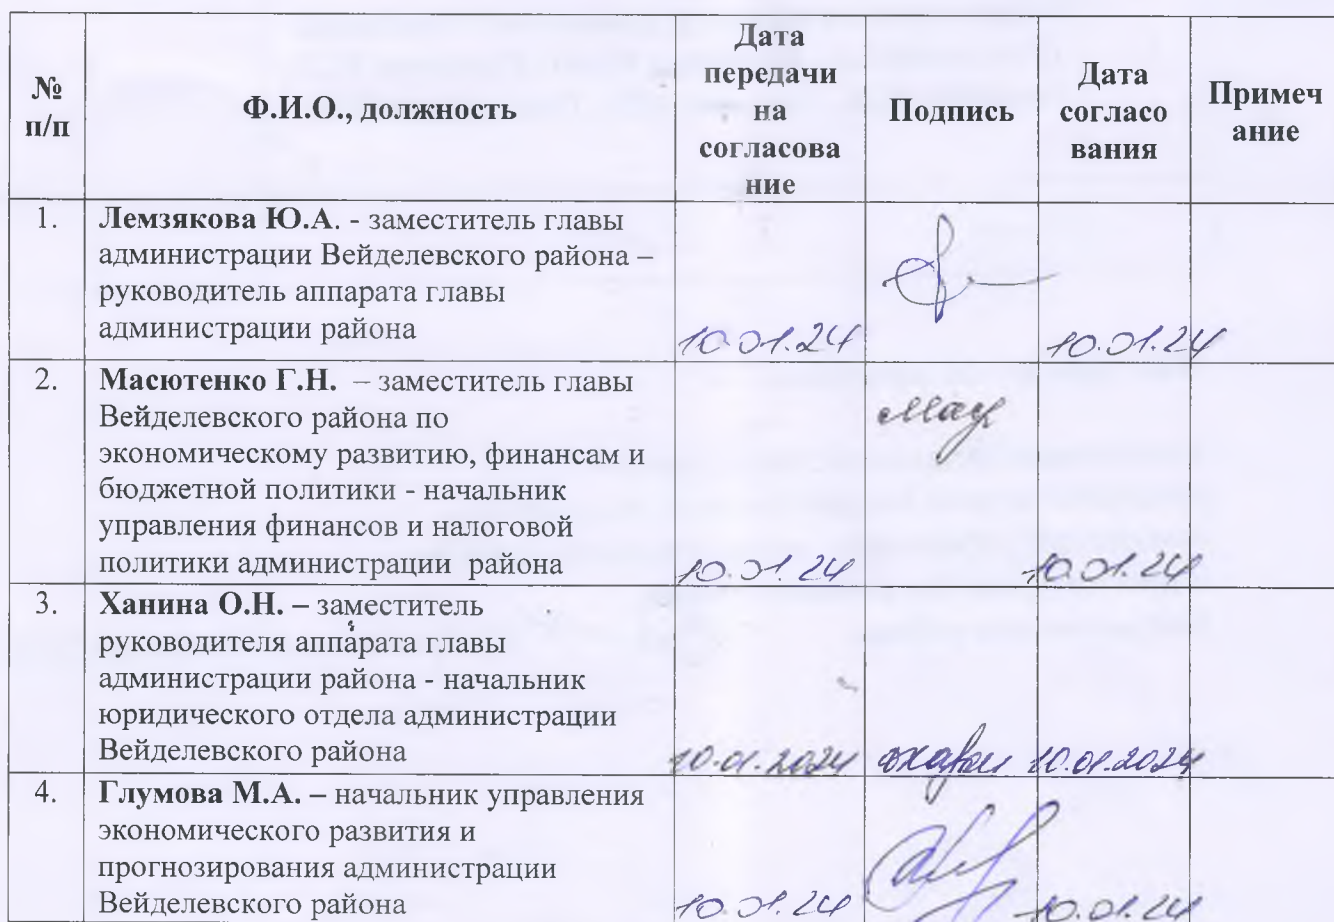 №
п/п
Ф.И.О., должность
Дата
передачи
на
согласова
ние
Подпись
Дата
согласо
вания
Примеч
ание
1.
Лемзякова Ю.А. - заместитель главы
администрации Вейделевского района –
руководитель аппарата главы
администрации района
10.01.24
10.01.24
2.
Масютенко Г.Н. – заместитель главы
Вейделевского района по
экономическому развитию, финансам и
бюджетной политики - начальник
управления финансов и налоговой
политики администрации района
10.01.24
10.01.24
3.
Ханина О.Н. – заместитель
руководителя аппарата главы
администрации района - начальник
юридического отдела администрации
Вейделевского района
10.01.2024
10.01.2024
4.
Глумова М.А. – начальник управления
экономического развития и
прогнозирования администрации
Вейделевского района
10.01.24
10.01.24